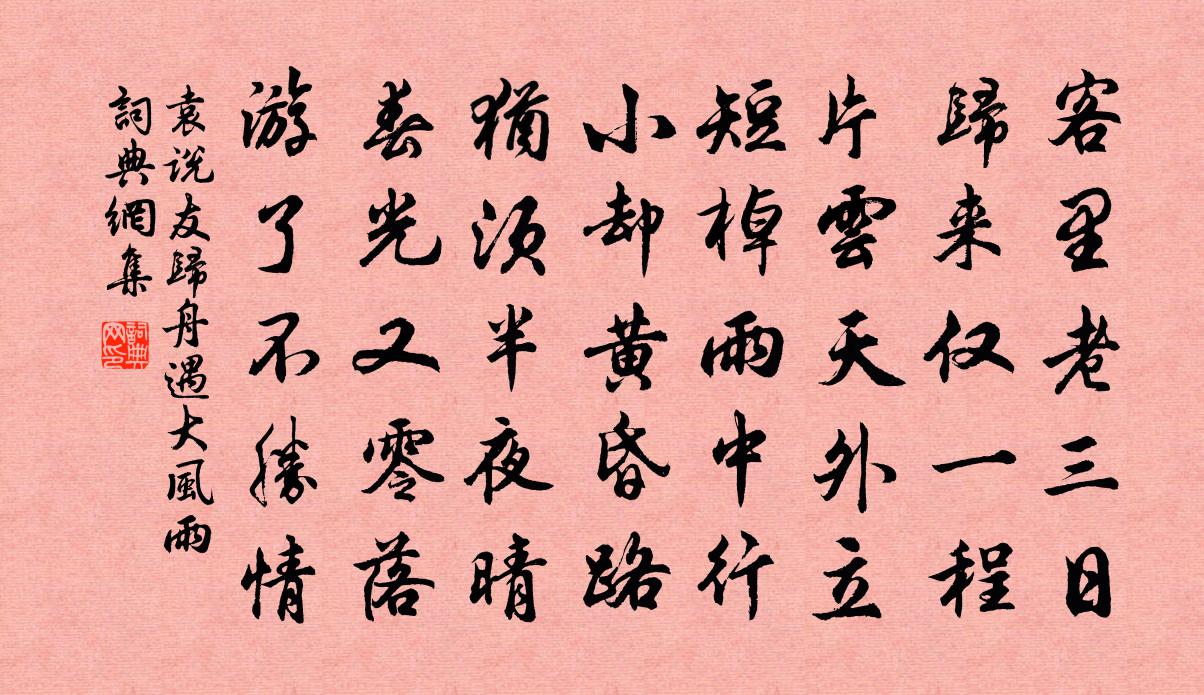 客里老三日
歸来仅一程
片雲天外立
短棹雨中行
小却黄昏路
猶须半夜晴
春光又零落
游了不勝情
袁说友歸舟遇大風雨
詞典網集
詞典网印